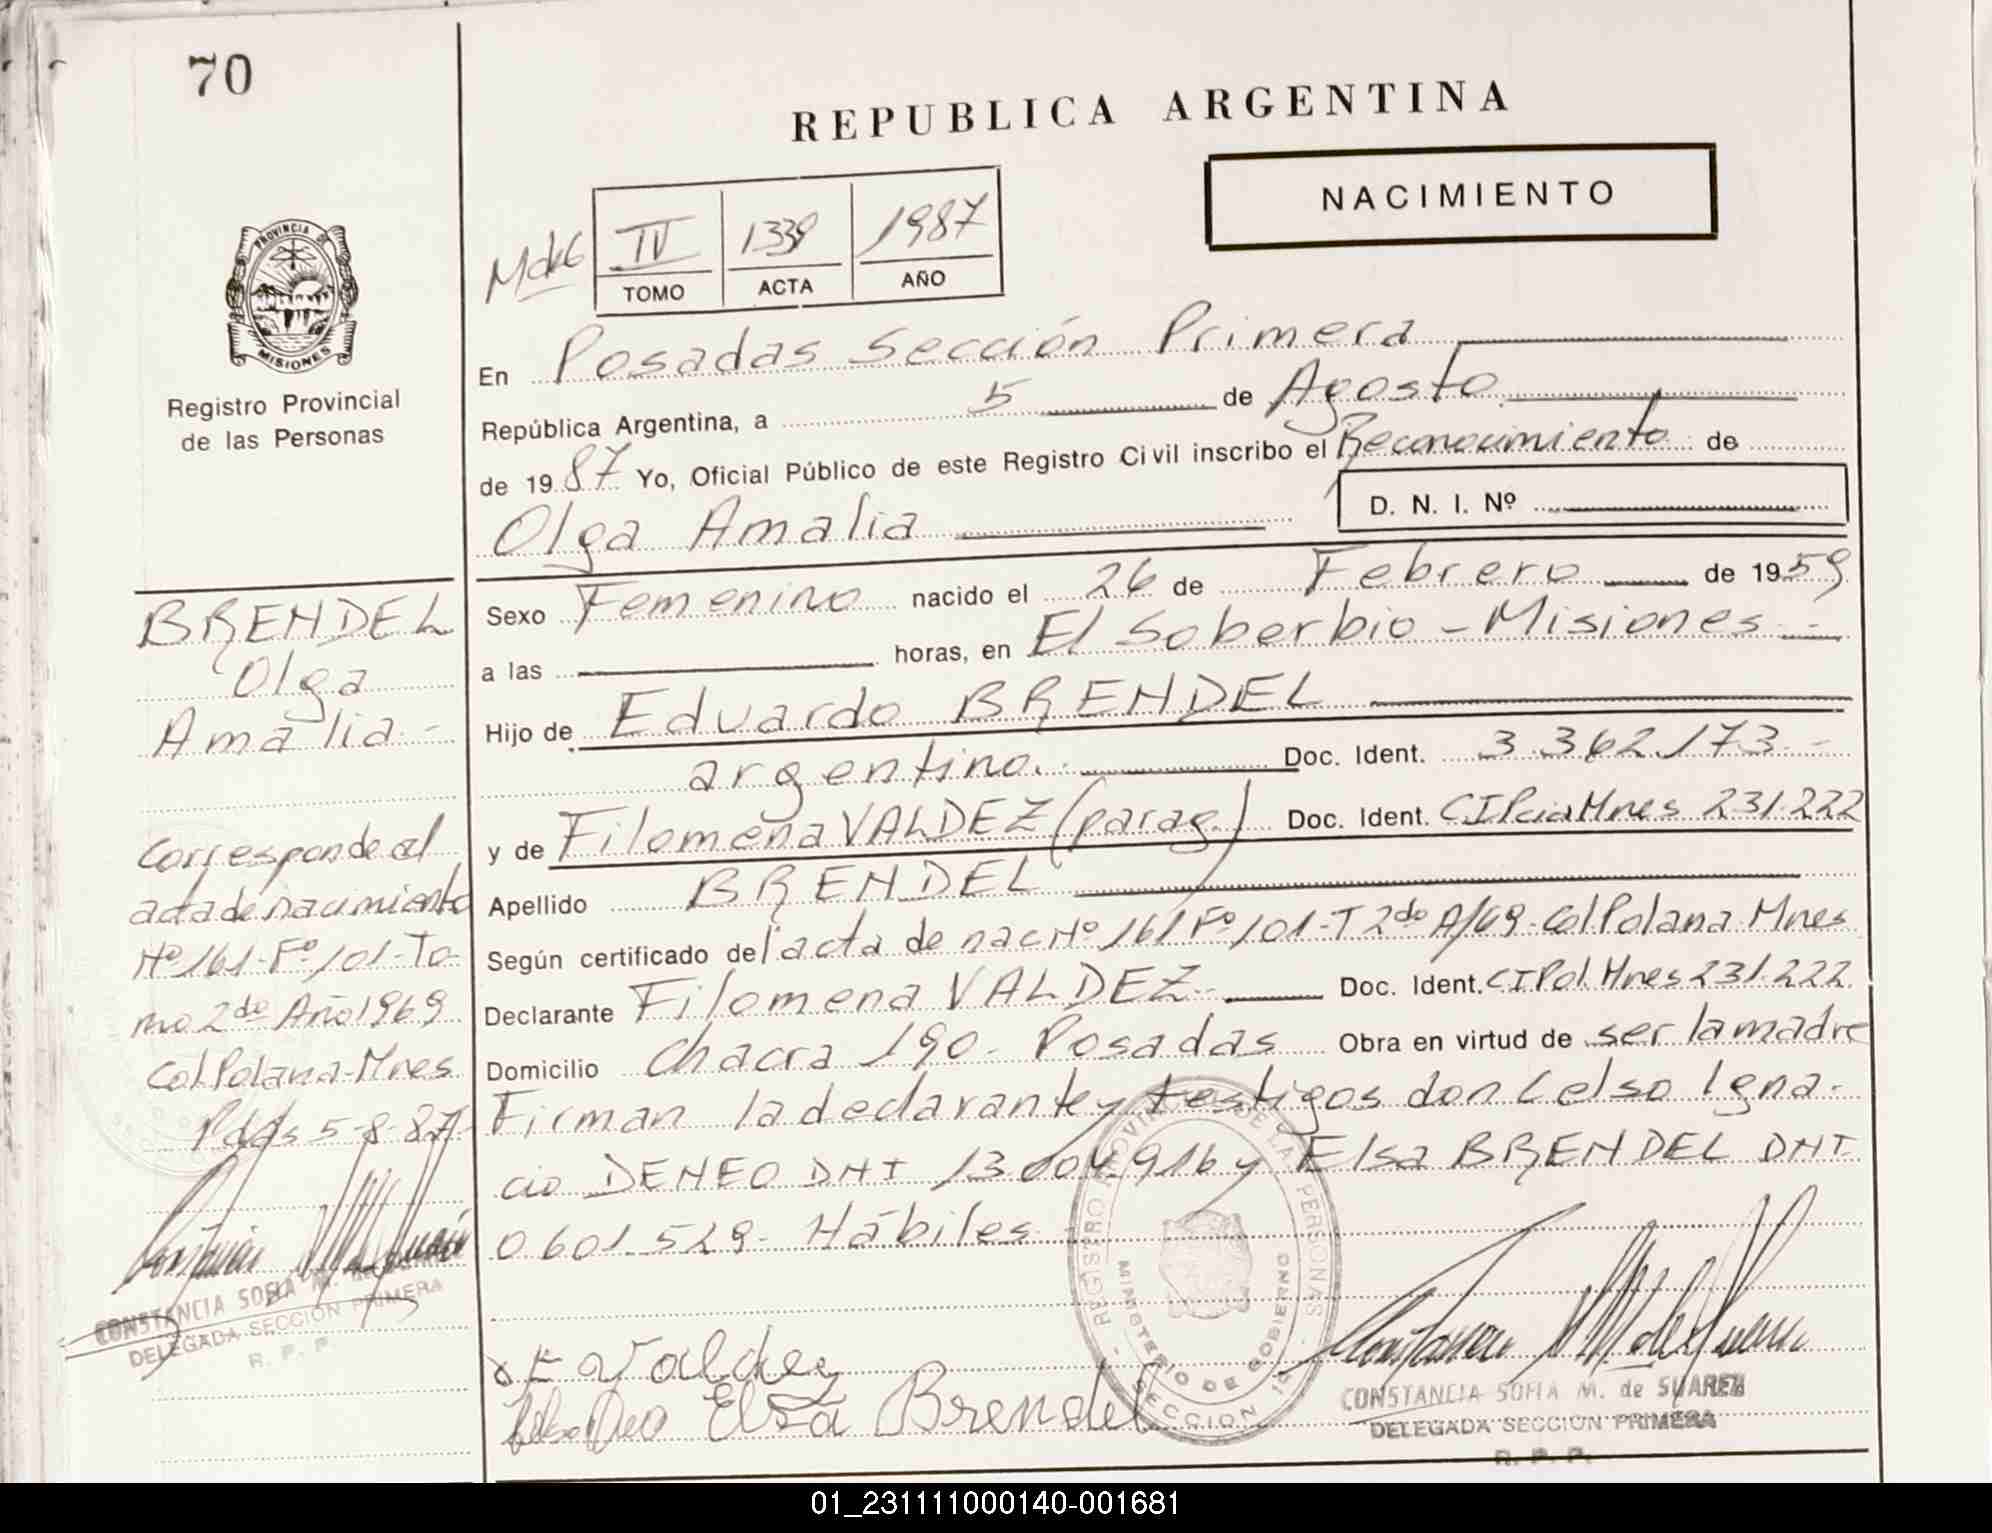 70
REPUBLICA ARGENTINA
NACIMIENTO
IV 1339 1987
TOMO ACTA AÑO
PROVINCIA DE
MISIONES
Registro Provincial
de las Personas
En Posadas Sección Primera
República Argentina, a 5 de Agosto
de 1987 Yo, Oficial Público de este Registro Civil inscribo el Reconocimiento de
D. N. I. Nº
Olga Amalia
Sexo Femenino nacido el 26 de Febrero de 1959
a las horas, en El Soberbio - Misiones -
Hijo de Eduardo BRENDEL
argentino.- Doc. Ident. 3.362.173 -
y de Filomena VALDEZ (parag.) Doc. Ident. CIPciaMnes 231.222
Apellido BRENDEL
Según certificado del acta de nac Nº 161 Fº 101-T 2do A/69-Col Polana-Mnes
Declarante Filomena VALDEZ- Doc. Ident. CIPol.Mnes 231.222
Domicilio Chacra 190- Posadas Obra en virtud de ser la madre
Firman la declarante y testigos don Celso Igna-
cio DENEO DNI 13.004.916 y Elsa BRENDEL DNI
0601.529- Hábiles
BRENDEL
Olga
Amalia.-
Corresponde al
acta de nacimiento
Nº 161-Fº 101-To-
mo 2do Año 1969
Col Polana-Mnes
Pdas 5-8-87-
CONSTANCIA SOFIA M. de
DELEGADA SECCION PRIMERA
R. P. P.
F Valdez
Elsa Brendel
REGISTRO PROVINCIAL DE LAS PERSONAS
MINISTERIO DE GOBIERNO
SECCION 1ª
CONSTANCIA SOFIA M. de SUAREZ
DELEGADA SECCION PRIMERA
R. P. P.
01_231111000140-001681